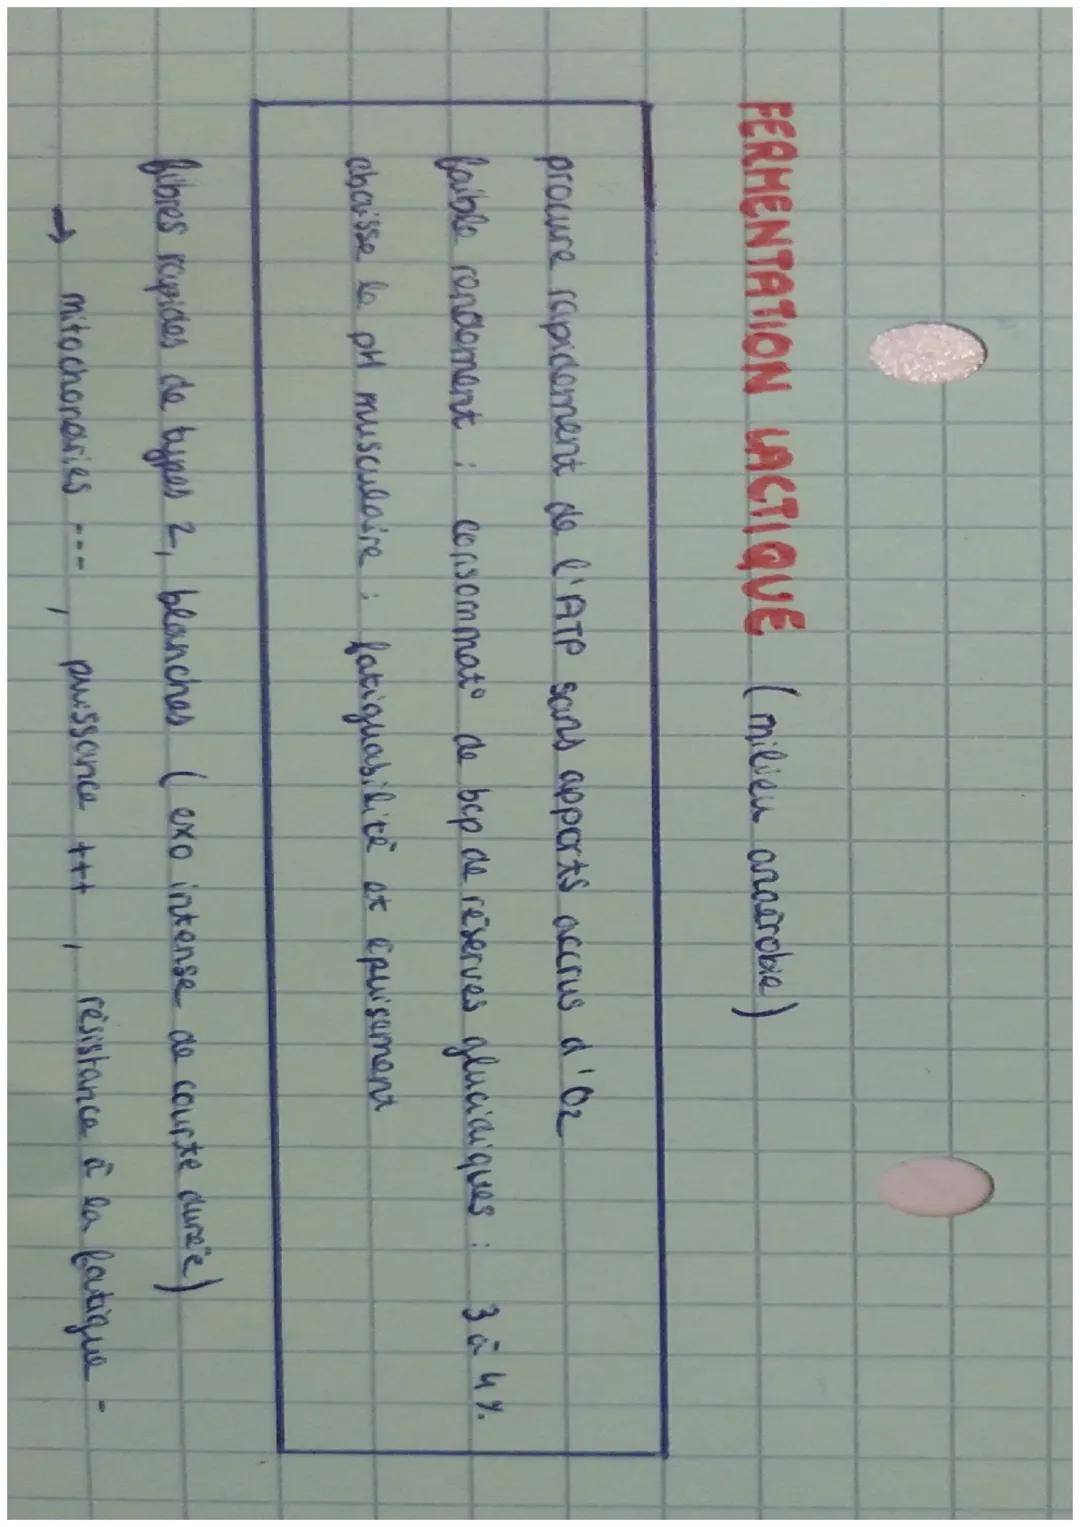 FERMENTATION LACTIQUE (milieu anaérobie)
procure rapidement de l'ATP sans apports accrus d'O2
faible rendement : consommat° de bcp de réserves glucidiques : 3 à 4%
abaisse le pH musculaire : fatiguabilité et épuisement
fibres rapides de types 2, blanches (exo intense de courte durée)
→ mitochondries ---, puissance +++, résistance à la fatigue -